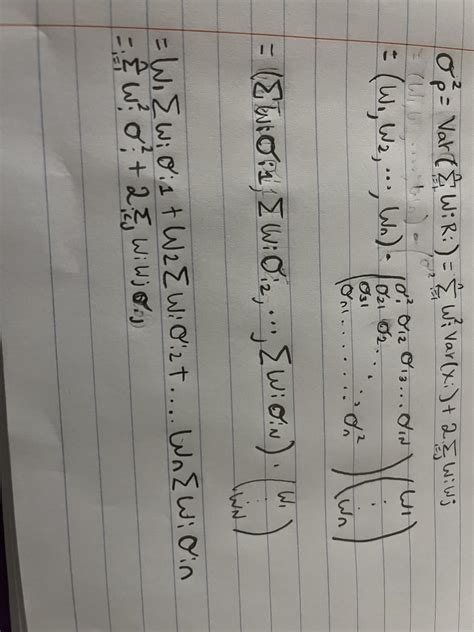 σ²ₚ = Var(Σⁿᵢ₌₁ WᵢRᵢ) = Σⁿᵢ₌₁ Wᵢ² Var(Xᵢ) + 2Σᵢ₌ⱼ WᵢWⱼ
= (W₁, W₂, ..., Wₙ) · (σ₁² σ₁₂ σ₁₃ ... σ₁N
σ₂₁ σ₂ ...
σ₃₁
σₙ₁ ....... σₙ²) (W₁ ⋮ Wₙ)
= (ΣWᵢσᵢ₁, ΣWᵢσᵢ₂, ..., ΣWᵢσᵢN) · (W₁ ⋮ WN)
= W₁ΣWᵢσᵢ₁ + W₂ΣWᵢσᵢ₂ + .... WₙΣWᵢσᵢₙ
= Σⁿᵢ₌₁ Wᵢ²σᵢ² + 2Σᵢ₌ⱼ WᵢWⱼσᵢⱼ